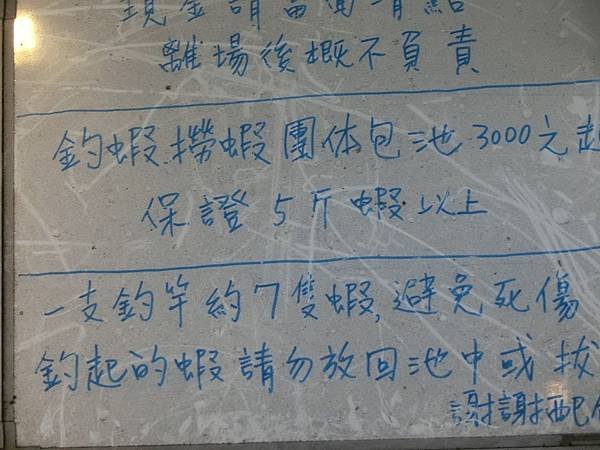 現金請當面清點
離場後概不負責
釣蝦.撈蝦團体包池3000元起
保證5斤蝦以上
一支釣竿約7隻蝦,避免死傷
釣起的蝦請勿放回池中或拔
謝謝配合